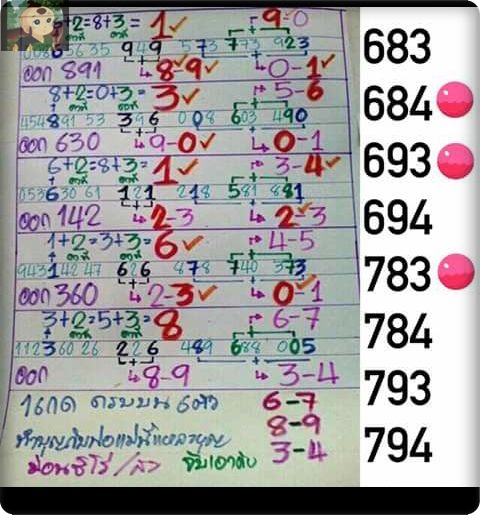 6+2=8+3=1 9-0
คงที่ คงที่
949 573 773 923
ออก 891 8-9 0-1
8+2=0+3=3 5-6
คงที่ คงที่
454891 53 396 008 603 490
ออก 630 9-0 0-1
6+2=8+3=1 3-4
คงที่ คงที่
053630 61 121 218 581 881
ออก 142 2-3 2-3
1+2=3+3=6 4-5
คงที่ คงที่
943142 47 626 878 740 373
ออก 360 2-3 0-1
3+2=5+3=8 6-7
คงที่ คงที่
112360 26 226 489 688 005
ออก 8-9 3-4
ครบบน 6ตัว 6-7
8-9
3-4
683
684
693
694
783
784
793
794